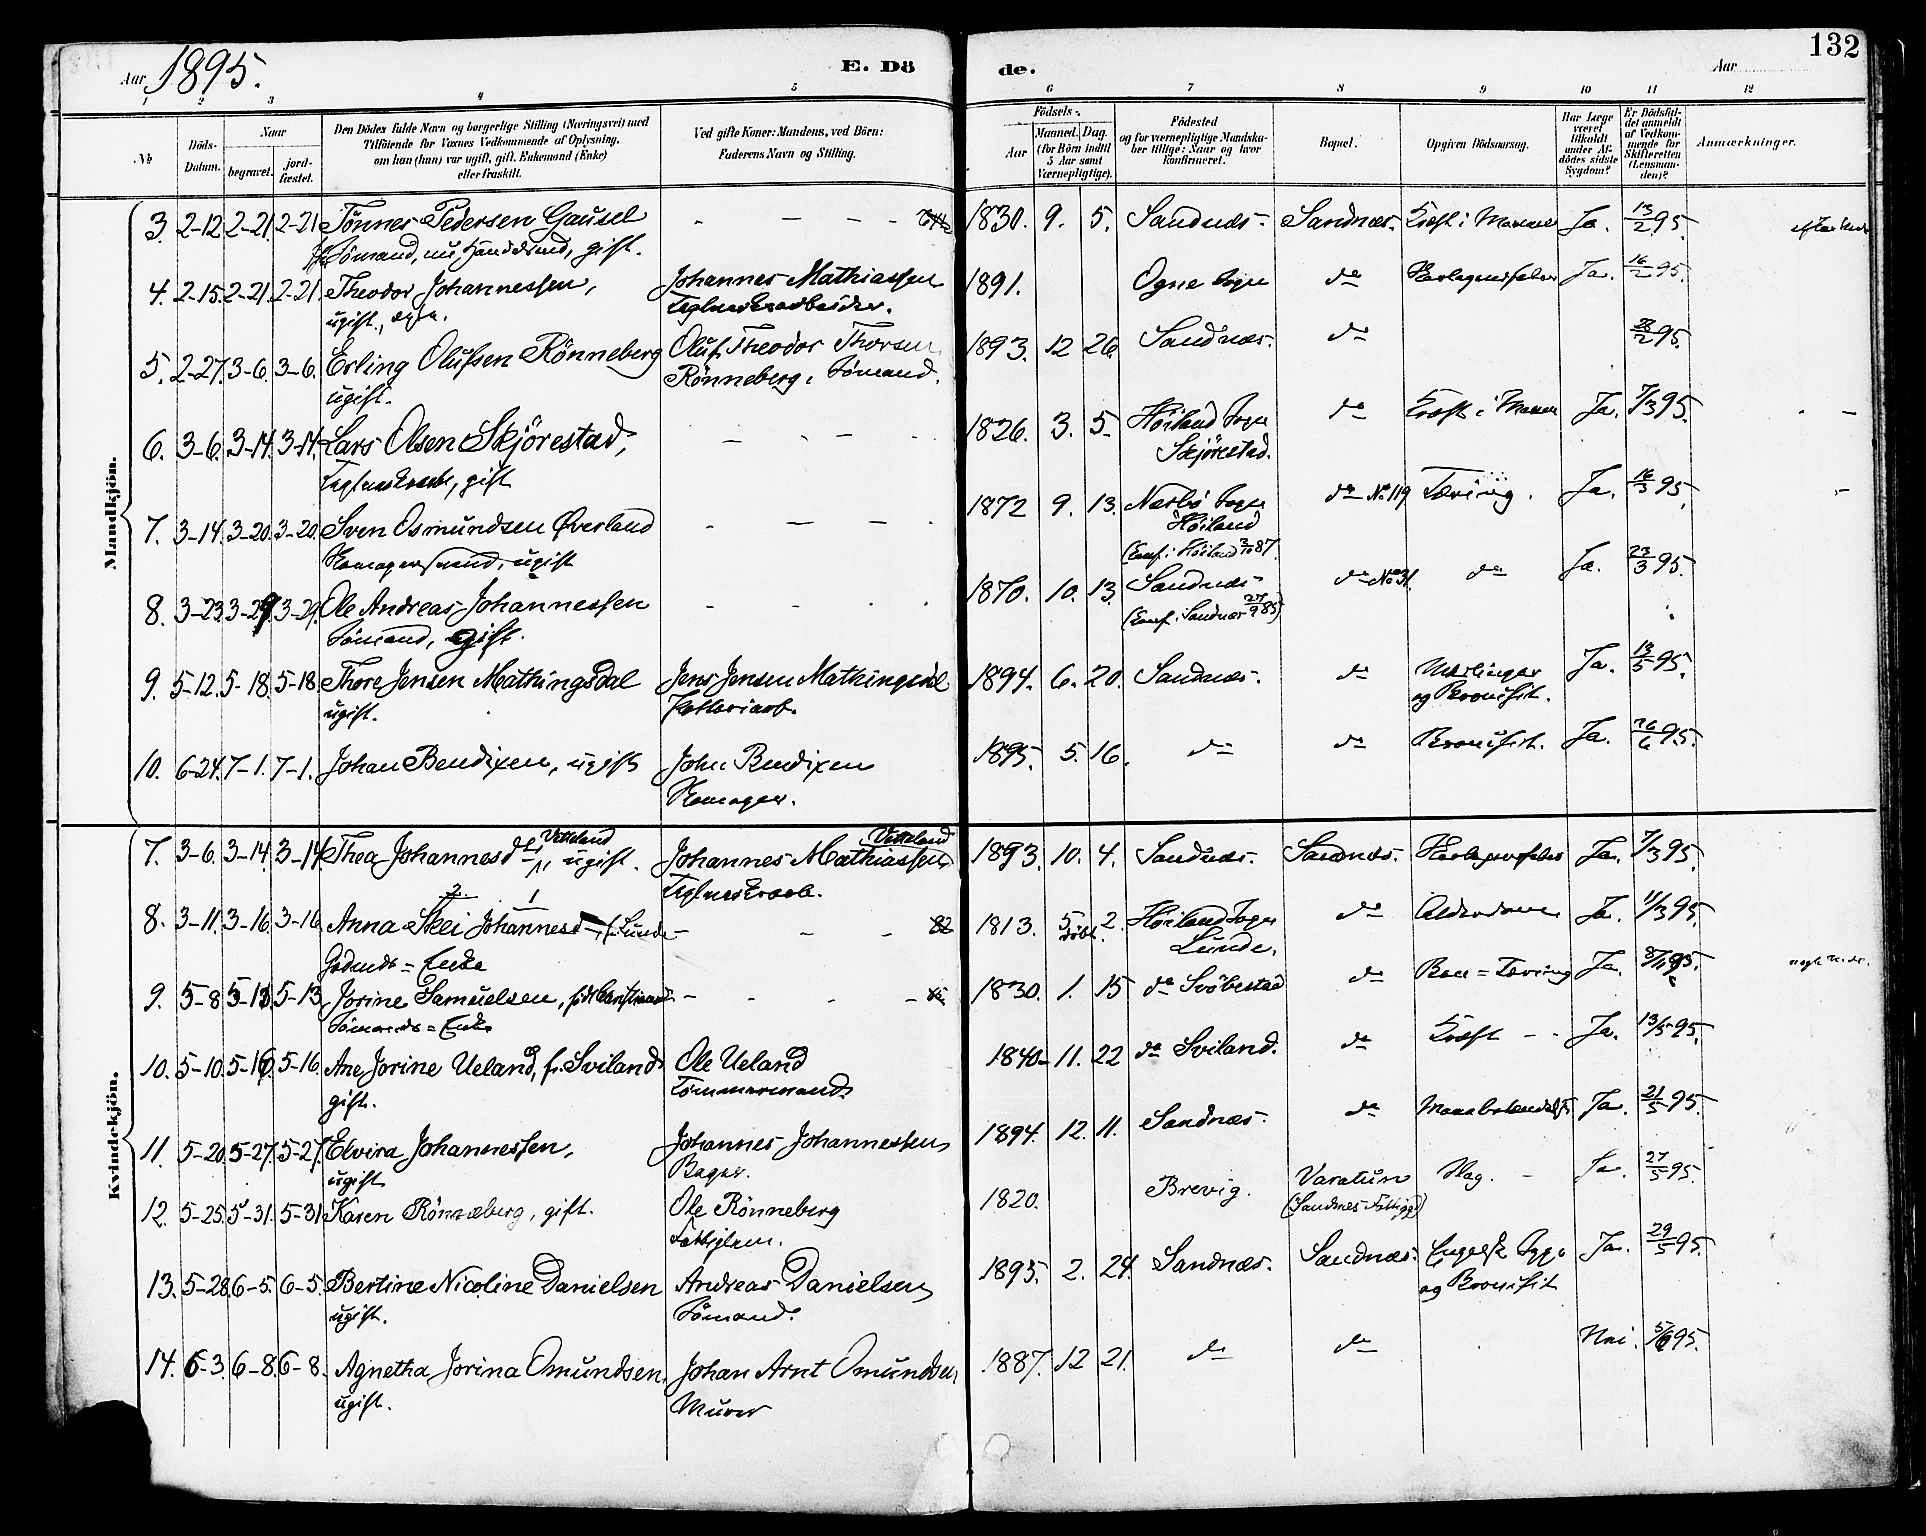 Aar 1895. E. Dö de. Aar 132
1 2 3 4 5 6 7 8 9 10 11 12
№
Döds-Datum.
Naar
begravet.
jord-fæstet.
Den Dödes fulde Navn og borgerlige Stilling (Næringsvei) med
Tilföiende for Voxnes Vedkommende af Oplysning,
om han (hun) var ugift, gift, Enkemand (Enke)
eller fraskilt.
Ved gifte Koner: Mandens, ved Börn:
Faderens Navn og Stilling.
Födsels-
Aar
Maaned. Dag.
(for Börn indtil
5 Aar samt
Værnepligtige).
Födested
og for værnepligtige Mandska-
ber tillige: Naar og hvor
konfirmeret.
Bopæl.
Opgiven Dödsaarsag.
Har Læge
været
tilkaldt
under Af-
dödes sidste
Sygdom?
Er Dödsfal-
det anmeldt
af Vedkom-
mende for
Skifteretten
(Lensman-
den)?
Anmærkninger.
Mandkjön.
3. 2-12. 2-21. 2-21. Tönnes Pedersen Gausel - - - - 1830. 9. 5. Sandnæs. Sandnæs. Kræft i Ja. 13/2 95.
Sömand, nu gift.
4. 2-15. 2-21. 2-21. Theodor Johannessen, Johannes Mathiassen 1891. Ogne Sogn do Ja. 16/2 95.
ugift. Teglverksarbeider.
5. 2-27. 3-6. 3-6. Erling Olufsen Rönneberg Oluf Theodor Thorsen 1893. 12 26. Sandnæs. do 28/2 95.
ugift. Rönneberg, Sömand.
6. 3-6. 3-14. 3-14. Lars Olsen Skjörestad, - - - 1826. 3. 5. Höiland Sogn do Kræft i Maven Ja. 7/3 95.
gift Skjörestad.
7. 3-14. 3-20. 3-20. Sven Osmundsen Øverland - - - 1872 9. 13. Nærbö Sogn do No 119 Tæring. Ja. 16/3 95.
ugift Höiland
(Konf. i Höiland 87.
8. 3-23. 3-29. 3-29. Ole Andreas Johannessen - - - 1870. 10. 13. Sandnæs do No 31. do Ja. 23/3 95.
Sömand, gift. (Konf. i Sandnæs 27/9 85)
9. 5-12. 5-18. 5-18. Thore Jensen Mathingsdal Jens Jensen Mathingsdal 1894. 6. 20. Sandnæs. do Mæslinger Ja. 13/5 95.
ugift. og Bronchit.
10. 6-24. 7-1. 7-1. Johan Bendixen, ugift John Bendixen 1895. 5. 16. do do Bronchit. Ja. 26/6 95.
Skomager.
Kvindekjön.
7. 3-6. 3-14. 3-14. Thea Johannesd ugift. Johannes Mathiassen 1893. 10. 4. Sandnæs. Sandnæs. Ja. 7/3 95.
8. 3-11. 3-16. 3-16. Anna Skei Johannesd f. Lunde - - - 1813. 5 2. Höiland Sogn do Ja. 11/3 95.
Enke döbt. Lunde.
9. 5-8 5-13. 5-13. Jorine Samuelsen, - - - 1830. 1. 15 do do Ben=Tæring Ja. 95.
Sömands=Enke
10. 5-10. 5-16. 5-16. Ane Jorine Ueland, f. Sviland Ole Ueland 1840. 11. 22 do Sviland. do Kræft Ja. 13/5 95.
gift. Tömmermand
11. 5-20. 5-27. 5-27. Elvira Johannessen, Johannes Johannessen, 1894. 12. 11. Sandnæs. do Ja. 21/5 95.
ugift Bager.
12. 5-25. 5-31. 5-31 Karen Rönneberg, gift. Ole Rönneberg 1820. Brevig. Varatun Slag. Ja. 27/5 95.
13. 5-28. 6-5. 6-5. Bertine Nicoline Danielsen Andreas Danielsen 1895. 2. 24. Sandnæs. Sandnæs. Engelsk Syge Ja. 29/5 95.
ugift. Sömand. og Bronchit
14. 6-3. 6-8. 6-8. Agnetha Jorina Omundsen, Johan Arnt Omundsen, 1887. 12 21. do do Nei. 5/6 95.
ugift. Murer